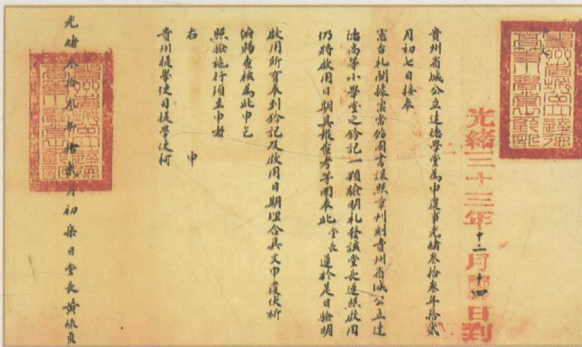 申文
光緒三十三年十二月十四日到
貴州省城公立達德學堂為申復事光緒叁拾叁年拾貳
月初七日接奉
憲台札開據宗
圖書課照章刊刻貴州省城公立達
德高等小學堂之鈐記一顆驗明札發該堂長遵照啟用
仍將啟用日期具報查考等因奉此堂長遵於是日驗明
啟用所有奉到鈐記及啟用日期理合具文申復伏祈
俯賜查核為此申乞
照驗施行須至申者
右 申
貴州提學使司提學使柯
光緒叁拾叁年拾貳月初柒日堂長黃